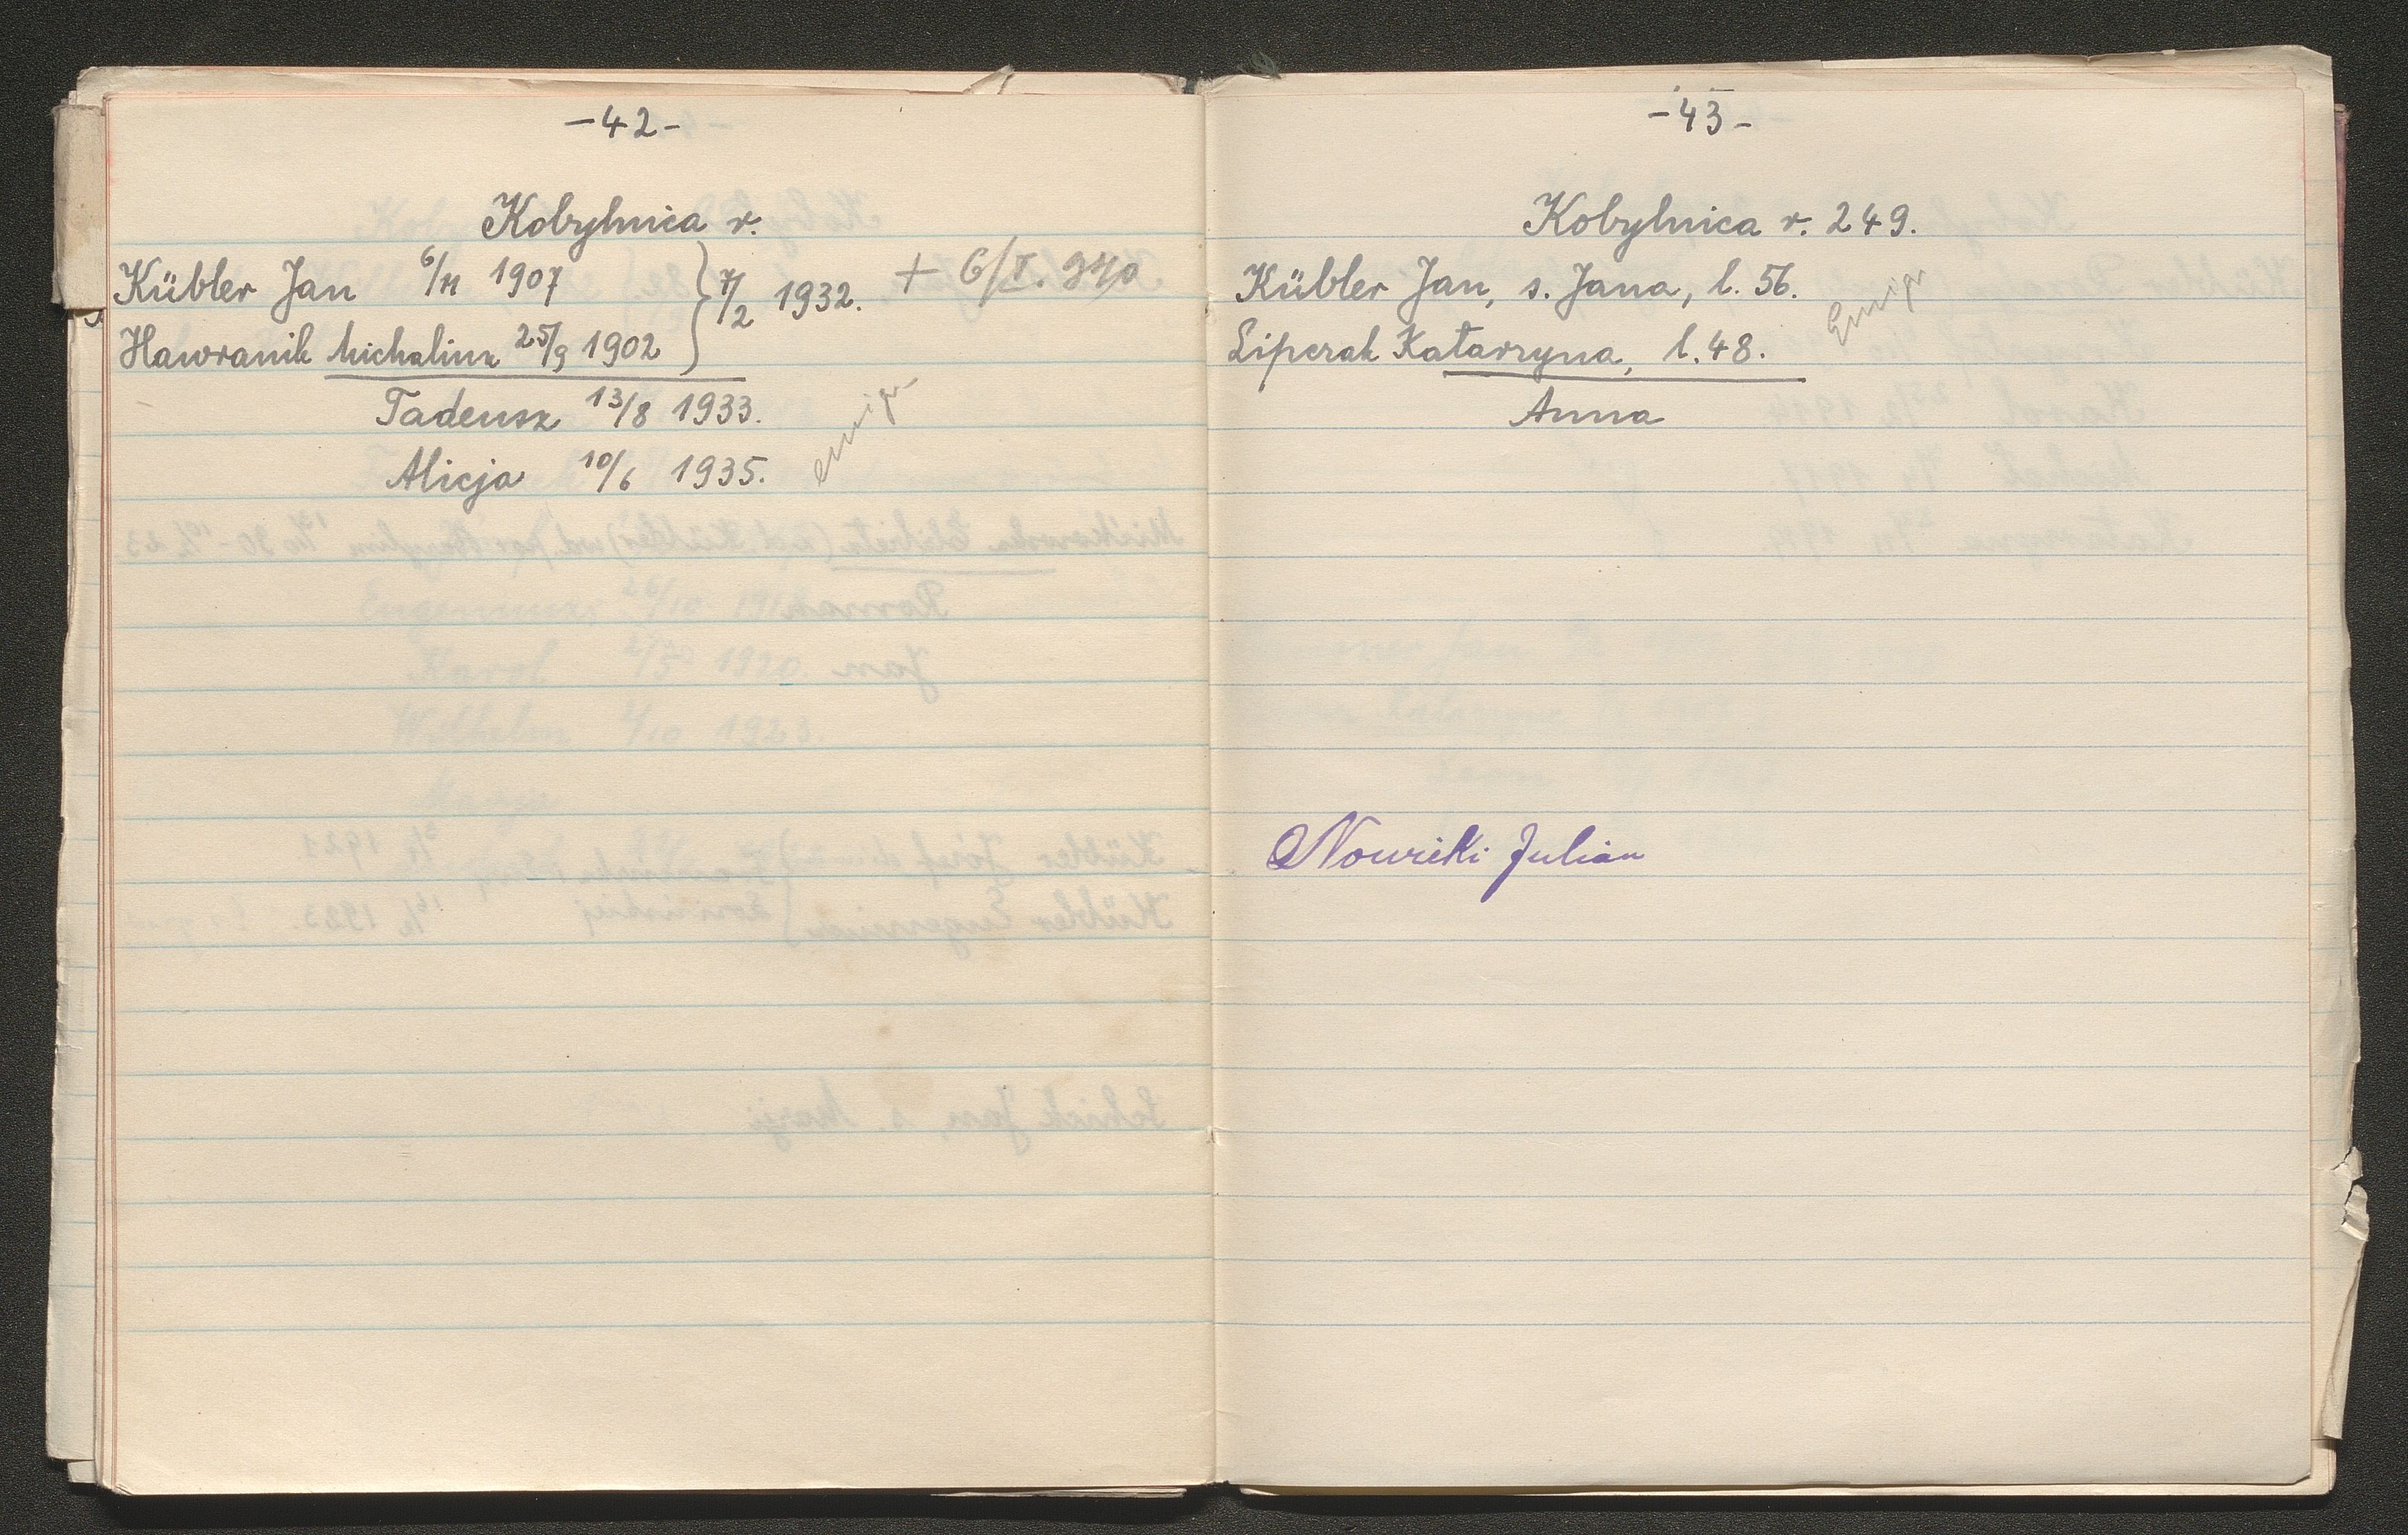 -42-
Kobylnica r.
Kübler Jan 6/11 1907 } 7/2 1932. + 6/I. 940
Hawranik Michalina 25/9 1902
Tadeusz 13/8 1933.
Alicja 10/6 1935. emigr
-43-
Kobylnica r. 249.
Kübler Jan, s. Jana, l. 56.
Liperak Katarzyna, l. 48. Emigr
Anna
Nowicki Julian